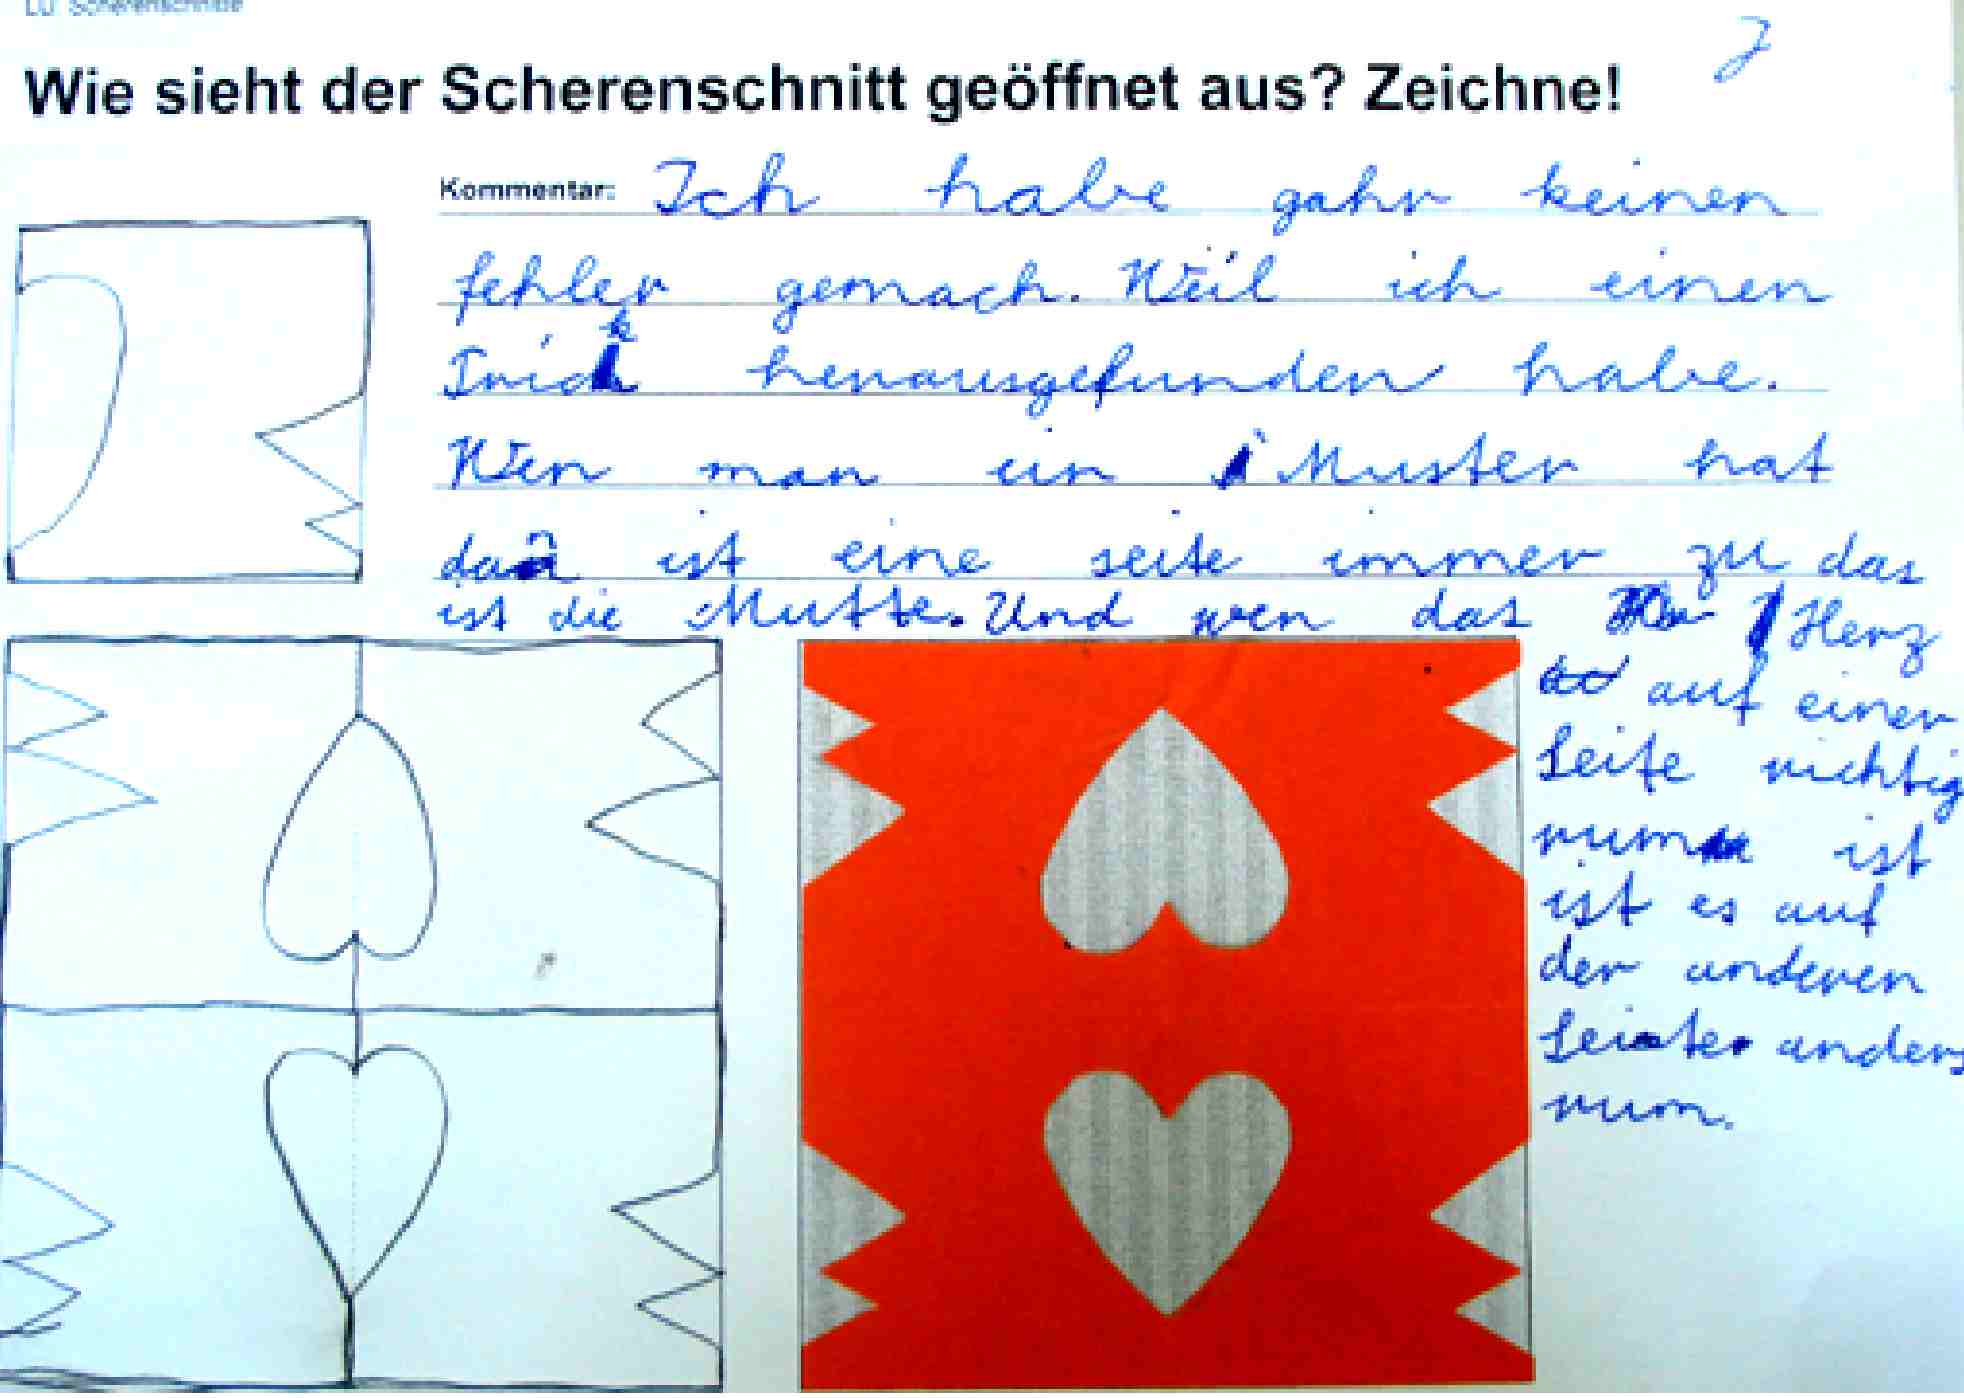 LU: Scherenschnitte
Wie sieht der Scherenschnitt geöffnet aus? Zeichne!
Kommentar: Ich habe gahr keinen
fehler gemach. Weil ich einen
Trick herausgefunden habe.
Wen man ein Muster hat
dan ist eine seite immer zu das
ist die Mutte. Und wen das Herz
auf einer
Seite richtig
rum ist
ist es auf
der anderen
Seite anders
rum.